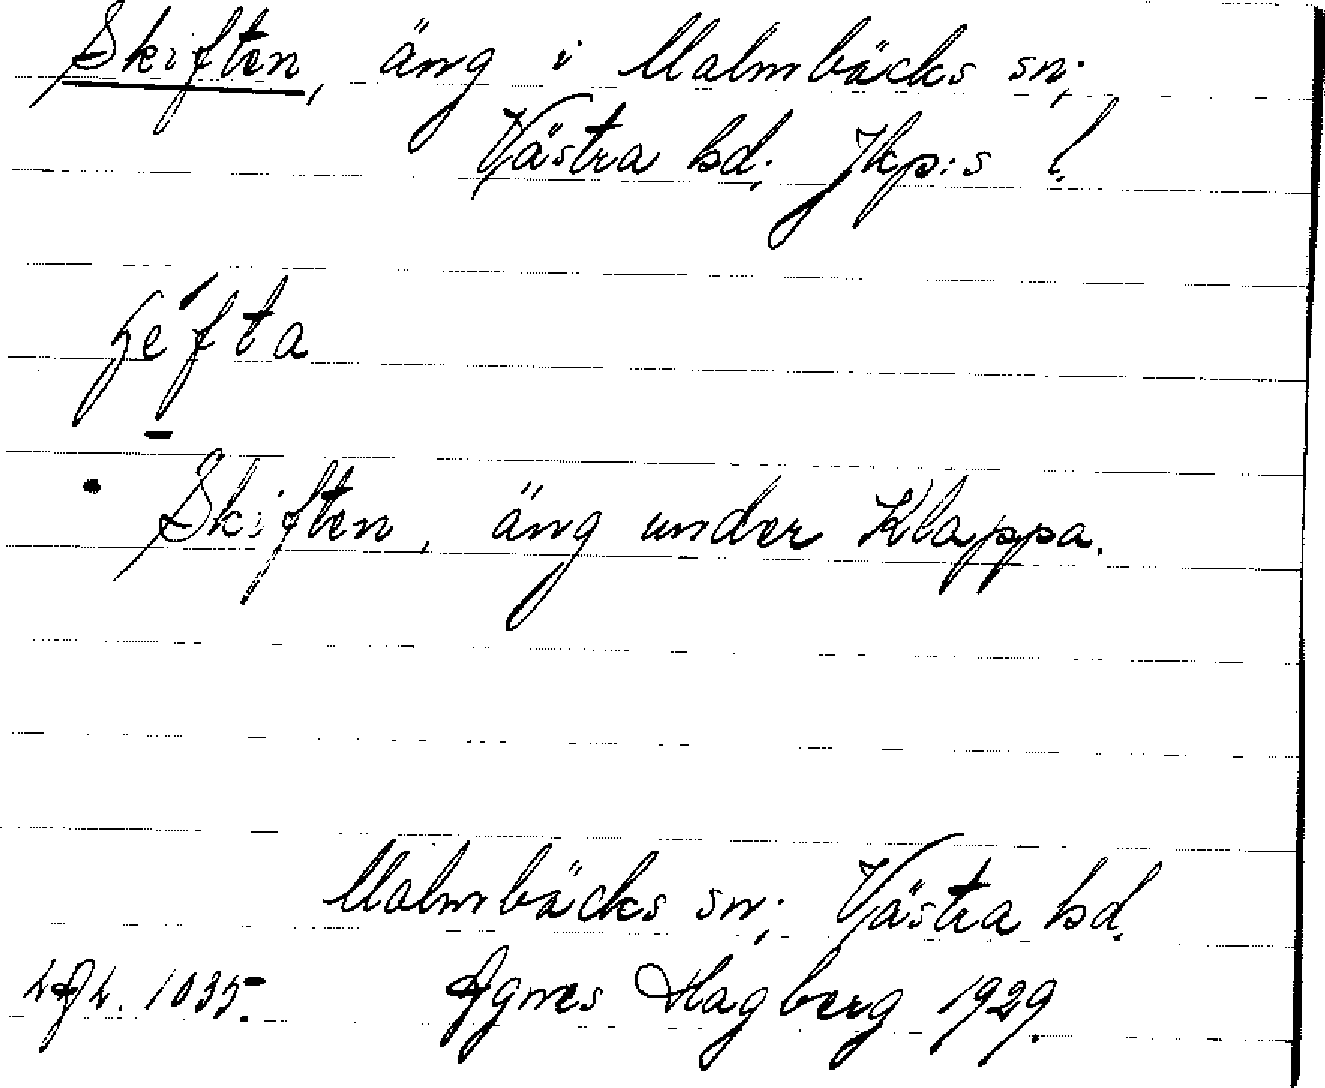 Skiften, äng i Malmbäcks sn;
Västra hd; Jkp:s l.
Skiften, äng under Klappa.
Malmbäcks sn; Västra hd.
1035. Agnes Hagberg 1929.